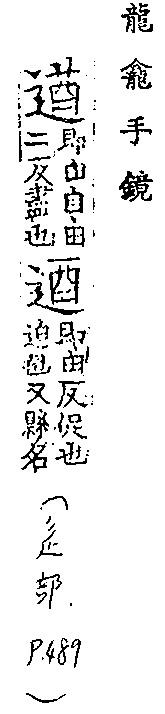 龍龕手鏡
遒即由自由
二反盡也
逎即由反促也
迫也又縣名
(辵部. P.489)